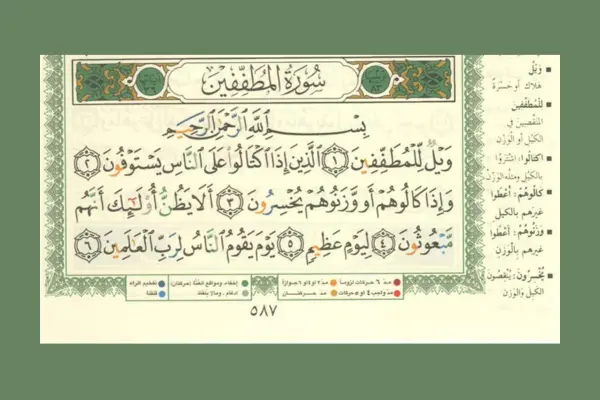 سُورَةُ المُطَفِّفِينَ
بِسْمِ اللَّهِ الرَّحْمَٰنِ الرَّحِيمِ
وَيْلٌ لِّلْمُطَفِّفِينَ ﴿١﴾ الَّذِينَ إِذَا اكْتَالُوا عَلَى النَّاسِ يَسْتَوْفُونَ ﴿٢﴾
وَإِذَا كَالُوهُمْ أَو وَّزَنُوهُمْ يُخْسِرُونَ ﴿٣﴾ أَلَا يَظُنُّ أُولَٰئِكَ أَنَّهُم
مَّبْعُوثُونَ ﴿٤﴾ لِيَوْمٍ عَظِيمٍ ﴿٥﴾ يَوْمَ يَقُومُ النَّاسُ لِرَبِّ الْعَالَمِينَ ﴿٦﴾
■ وَيْلٌ
هلاك أو حسرة
■ لِلْمُطَفِّفِينَ
المنقصين في
الكيل أو الوزن
■ اكتالوا: اشتروا
بالكيل ومثله الوزن
■ كَالُوهُمْ: أعطوا
غيرهم بالكيل
■ وَزَنُوهُمْ: أعطوا
غيرهم بالوزن
■ يُخْسِرُونَ: ينقصون
الكيل والوزن
مدّ ٦ حركات لزوماً مدّ ٢ أو ٤ أو ٦ جوازاً
مدّ واجب ٤ أو ٥ حركات مدّ حركتان
إخفاء، ومواقع الغنّة (حركتان) تفخيم الراء
ادغام، وما لا يلفظ قلقلة
٥٨٧